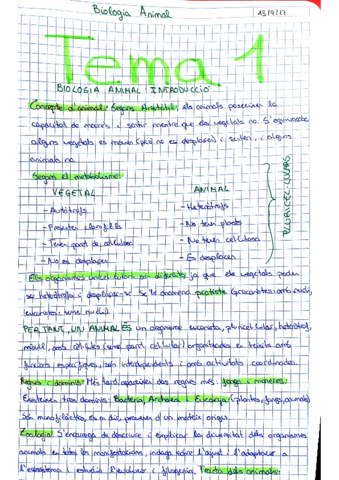 Biologia Animal 13/9/17
Tema 1
BIOLOGIA ANIMAL: INTRODUCCIÓ
Concepte d'animal: Segons Aristòtil, els animals posseixen la
capacitat de moure's i sentir mentre que els vegetals no. S'equivocava
alguns vegetals es mouen (però no es desplacen) i senten, i alguns
animals no.
Segons el metabolisme:
VEGETAL ANIMAL
- Autòtrofs - Heteròtrofs
- Presenten clorofil·les - No tenen plasts
- Tenen paret de cel·lulosa - No tenen cel·lulosa
- No es desplacen - Es desplacen
PLURICEL·LULARS
Els organismes unicel·lulars són diferents ja que els vegetals poden
ser heteròtrofs i desplaçar-se. Se'ls anomena protistes (procariotes: amb nucli,
eucariotes: sense nucli).
PER TANT, UN ANIMAL ÉS un organisme eucariota, pluricel·lular, heteròtrof,
mòbil, amb cèl·lules (sense paret cel·lular) organitzades en teixits amb
funcions específiques, però interdependents i amb activitats coordinades.
Regnes i dominis: Més tard apareixen dos regnes més: fongs i moneres.
Existeixen tres dominis: Bacteria, Archaea i Eucarya (plantes, fongs, animals)
Són monofilètics, és a dir, provenen d'un mateix origen.
Zoologia: S'encarrega de descriure i explicar la diversitat dels organismes
animals en totes les manifestacions, indaga sobre l'ajust i l'adaptació a
l'ecosistema i estudia l'evolució i filogènia. Trets dels animals: